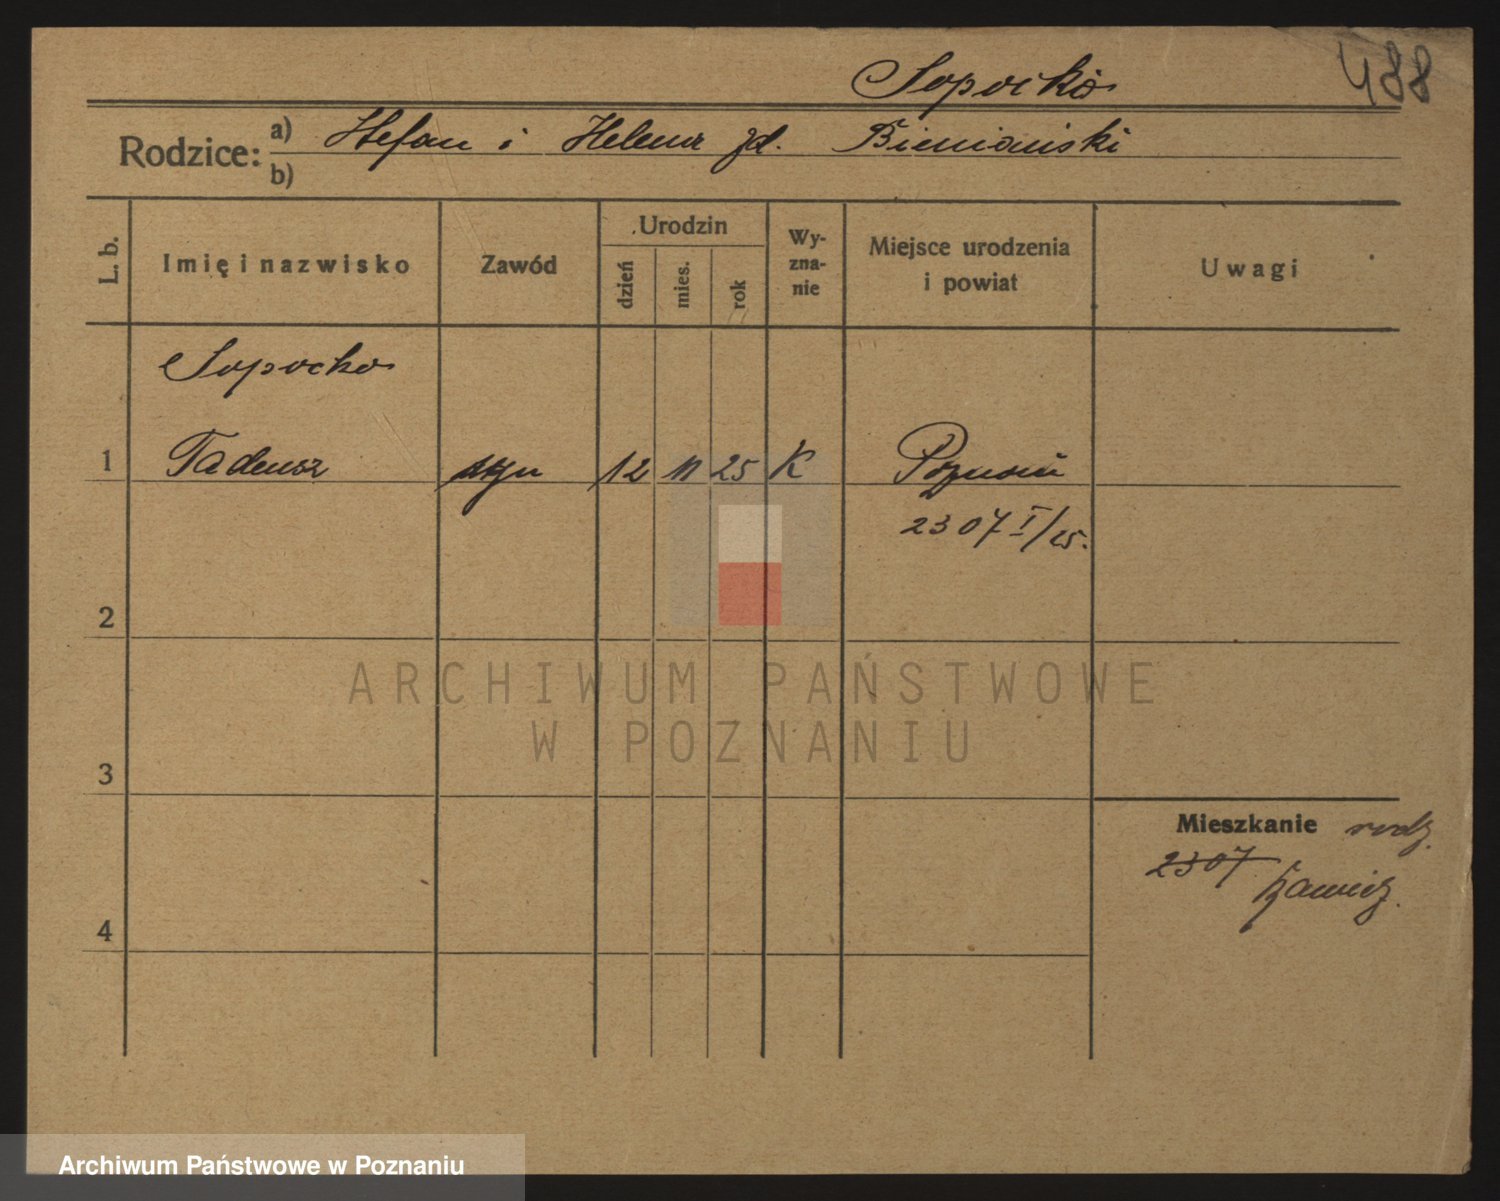 Sopoćko 488
Rodzice:
a) Stefan i Helena zd.
b)
L. b.
Imię i nazwisko
Zawód
Urodzin
dzień
mies.
rok
Wy-
zna-
nie
Miejsce urodzenia
i powiat
Uwagi
Sopocko
1 Tadeusz syn 12 11 25 K Poznań
2307 I/25.
2
3
4
Mieszkanie rodz.
2307
ARCHIWUM PAŃSTWOWE
W POZNANIU
Archiwum Państwowe w Poznaniu